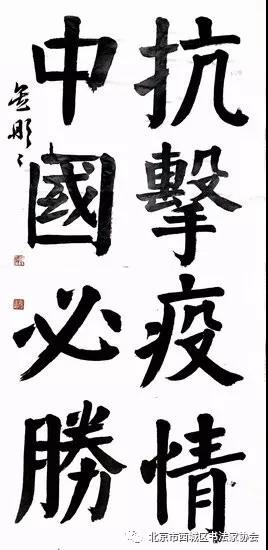 抗擊疫情
中國必勝
北京市西城区书法家协会